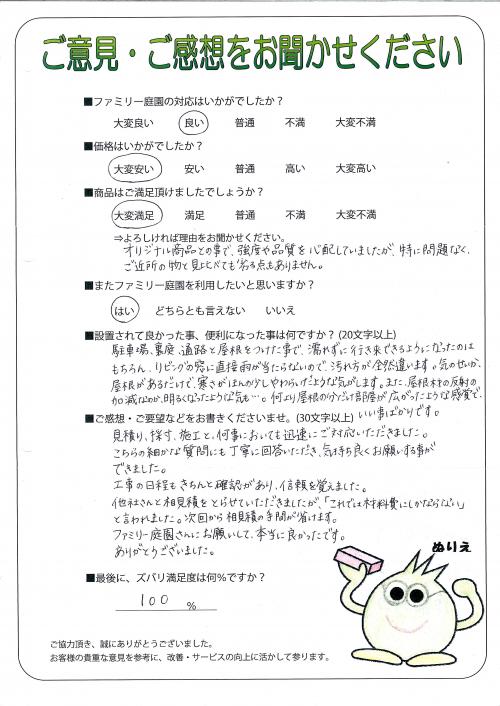 ご意見・ご感想をお聞かせください
■ファミリー庭園の対応はいかがでしたか？
大変良い 良い 普通 不満 大変不満
■価格はいかがでしたか？
大変安い 安い 普通 高い 大変高い
■商品はご満足頂けましたでしょうか？
大変満足 満足 普通 不満 大変不満
⇒よろしければ理由をお聞かせください。
オリジナル商品との事で、強度や品質を心配していましたが、特に問題なく、
ご近所の物と見比べても劣る点もありません。
■またファミリー庭園を利用したいと思いますか？
はい どちらとも言えない いいえ
■設置されて良かった事、便利になった事は何ですか？(20文字以上)
駐車場、裏庭、通路と屋根をつけた事で、濡れずに行き来できるようになったのは
もちろん、リビングの窓に直接雨が当たらないので、汚れ方が全然違います。気のせいか、
屋根があるだけで、寒さがほんの少しやわらいだような気がします。また、屋根材の反射の
加減なのか、明るくなったような気も…。何より屋根の分だけ部屋が広がったような感覚で、
いい事ばかりです。
■ご感想・ご要望などをお書きくださいませ。(30文字以上)
見積り、採寸、施工と、何事においても迅速にご対応いただきました。
こちらの細かな質問にも丁寧に回答いただき、気持ち良くお願いする事が
できました。
工事の日程もきちんと確認があり、信頼を覚えました。
他社さんと相見積をとらせていただきましたが、「これでは材料費にしかならない」
と言われました。次回から相見積の手間が省けます。
ファミリー庭園さんにお願いして、本当に良かったです。
ありがとうございました。
ぬりえ
■最後に、ズバリ満足度は何%ですか？
100 %
ご協力頂き、誠にありがとうございました。
お客様の貴重な意見を参考に、改善・サービスの向上に活かして参ります。